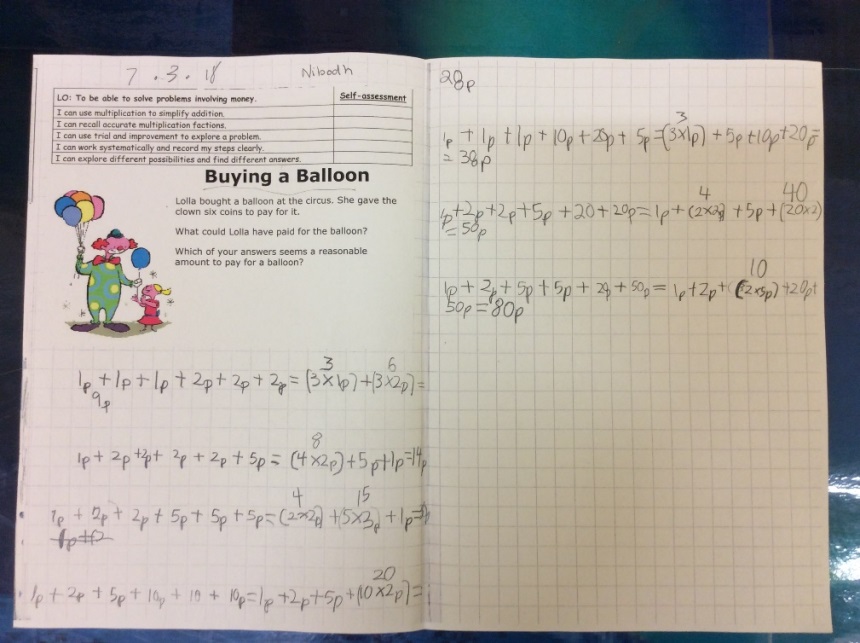 7 . 3 . 18
Nibodh
LO: To be able to solve problems involving money.
Self-assessment
I can use multiplication to simplify addition.
I can recall accurate multiplication factions.
I can use trial and improvement to explore a problem.
I can work systematically and record my steps clearly.
I can explore different possibilities and find different answers.
Buying a Balloon
Lolla bought a balloon at the circus. She gave the
clown six coins to pay for it.
What could Lolla have paid for the balloon?
Which of your answers seems a reasonable
amount to pay for a balloon?
3 6
1p + 1p + 1p + 2p + 2p + 2p = (3 x 1p) + (3 x 2p) =
9p
8
1p + 2p + 2p + 2p + 2p + 5p = (4 x 2p) + 5p + 1p = 14p
4 15
1p + 2p + 2p + 5p + 5p + 5p = (2 x 2p) + (5 x 3p) + 1p =
20
1p + 2p + 5p + 10p + 10 + 10p = 1p + 2p + 5p + (10 x 2p) =
28p
3
1p + 1p + 1p + 10p + 20p + 5p = (3 x 1p) + 5p + 10p + 20p =
= 38p
4 40
1p + 2p + 2p + 5p + 20 + 20p = 1p + (2 x 2p) + 5p + (20 x 2)
= 50p
10
1p + 2p + 5p + 5p + 20p + 50p = 1p + 2p + (2 x 5p) + 20p +
50p = 80p